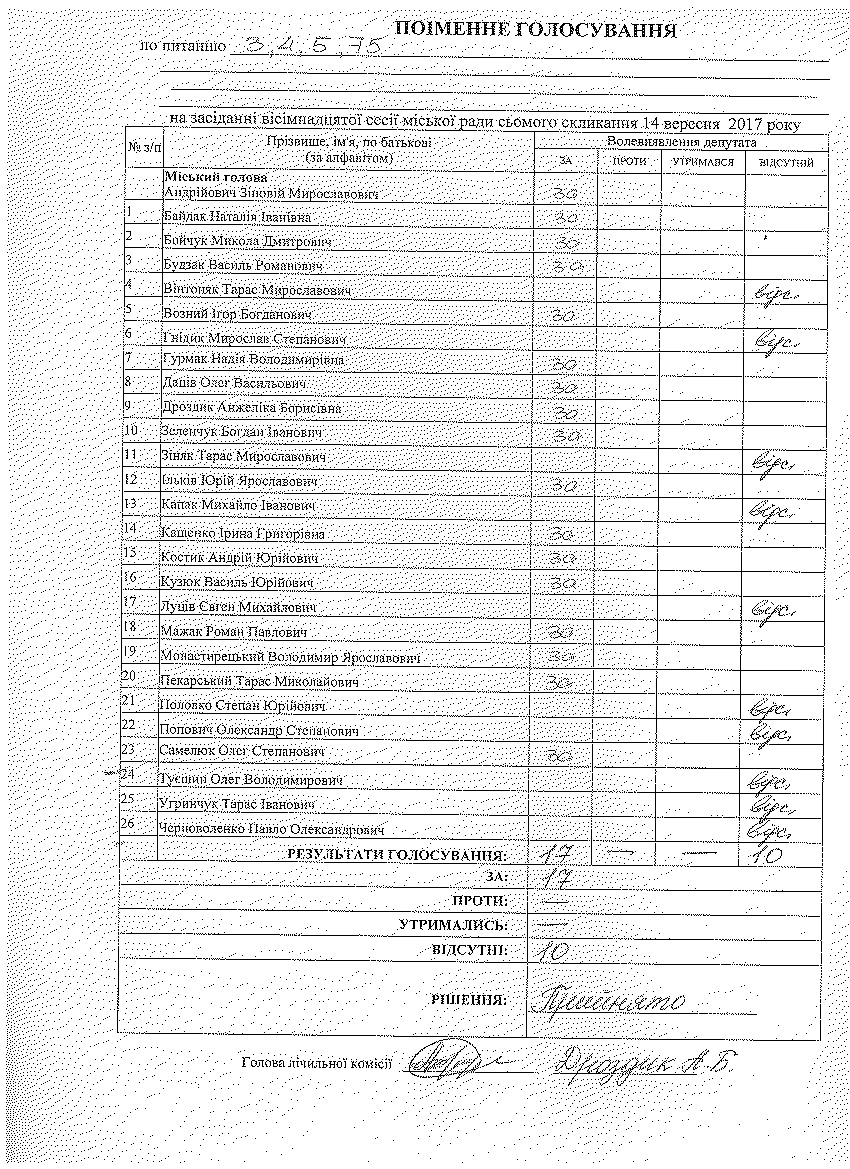 ПОІМЕННЕ ГОЛОСУВАННЯ
по питанню 3, 4, 5, 75
на засіданні вісімнадцятої сесії міської ради сьомого скликання 14 вересня 2017 року
№ з/п Прізвище, ім'я, по батькові (за алфавітом) Волевиявлення депутата
ЗА ПРОТИ УТРИМАВСЯ ВІДСУТНІЙ
Міський голова
Андрійович Зіновій Мирославович за
1 Байдак Наталія Іванівна за
2 Бойчук Микола Дмитрович за
3 Будзак Василь Романович за
4 Вінтоняк Тарас Мирославович відс.
5 Возний Ігор Богданович за
6 Гнідик Мирослав Степанович відс.
7 Гурмак Надія Володимирівна за
8 Даців Олег Васильович за
9 Дроздик Анжеліка Борисівна за
10 Зеленчук Богдан Іванович за
11 Зіняк Тарас Мирославович відс.
12 Ільків Юрій Ярославович за
13 Капак Михайло Іванович відс.
14 Кащенко Ірина Григорівна за
15 Костик Андрій Юрійович за
16 Кузюк Василь Юрійович за
17 Луців Євген Михайлович відс.
18 Мажак Роман Павлович за
19 Монастирецький Володимир Ярославович за
20 Пекарський Тарас Миколайович за
21 Половко Степан Юрійович відс.
22 Попович Олександр Степанович відс.
23 Самелюк Олег Степанович за
24 Туєшин Олег Володимирович відс.
25 Угринчук Тарас Іванович відс.
26 Черноволенко Павло Олександрович відс.
РЕЗУЛЬТАТИ ГОЛОСУВАННЯ: 17 — — 10
ЗА: 17
ПРОТИ: —
УТРИМАЛИСЬ: —
ВІДСУТНІ: 10
РІШЕННЯ: Прийнято
Голова лічильної комісії Дроздик А.Б.